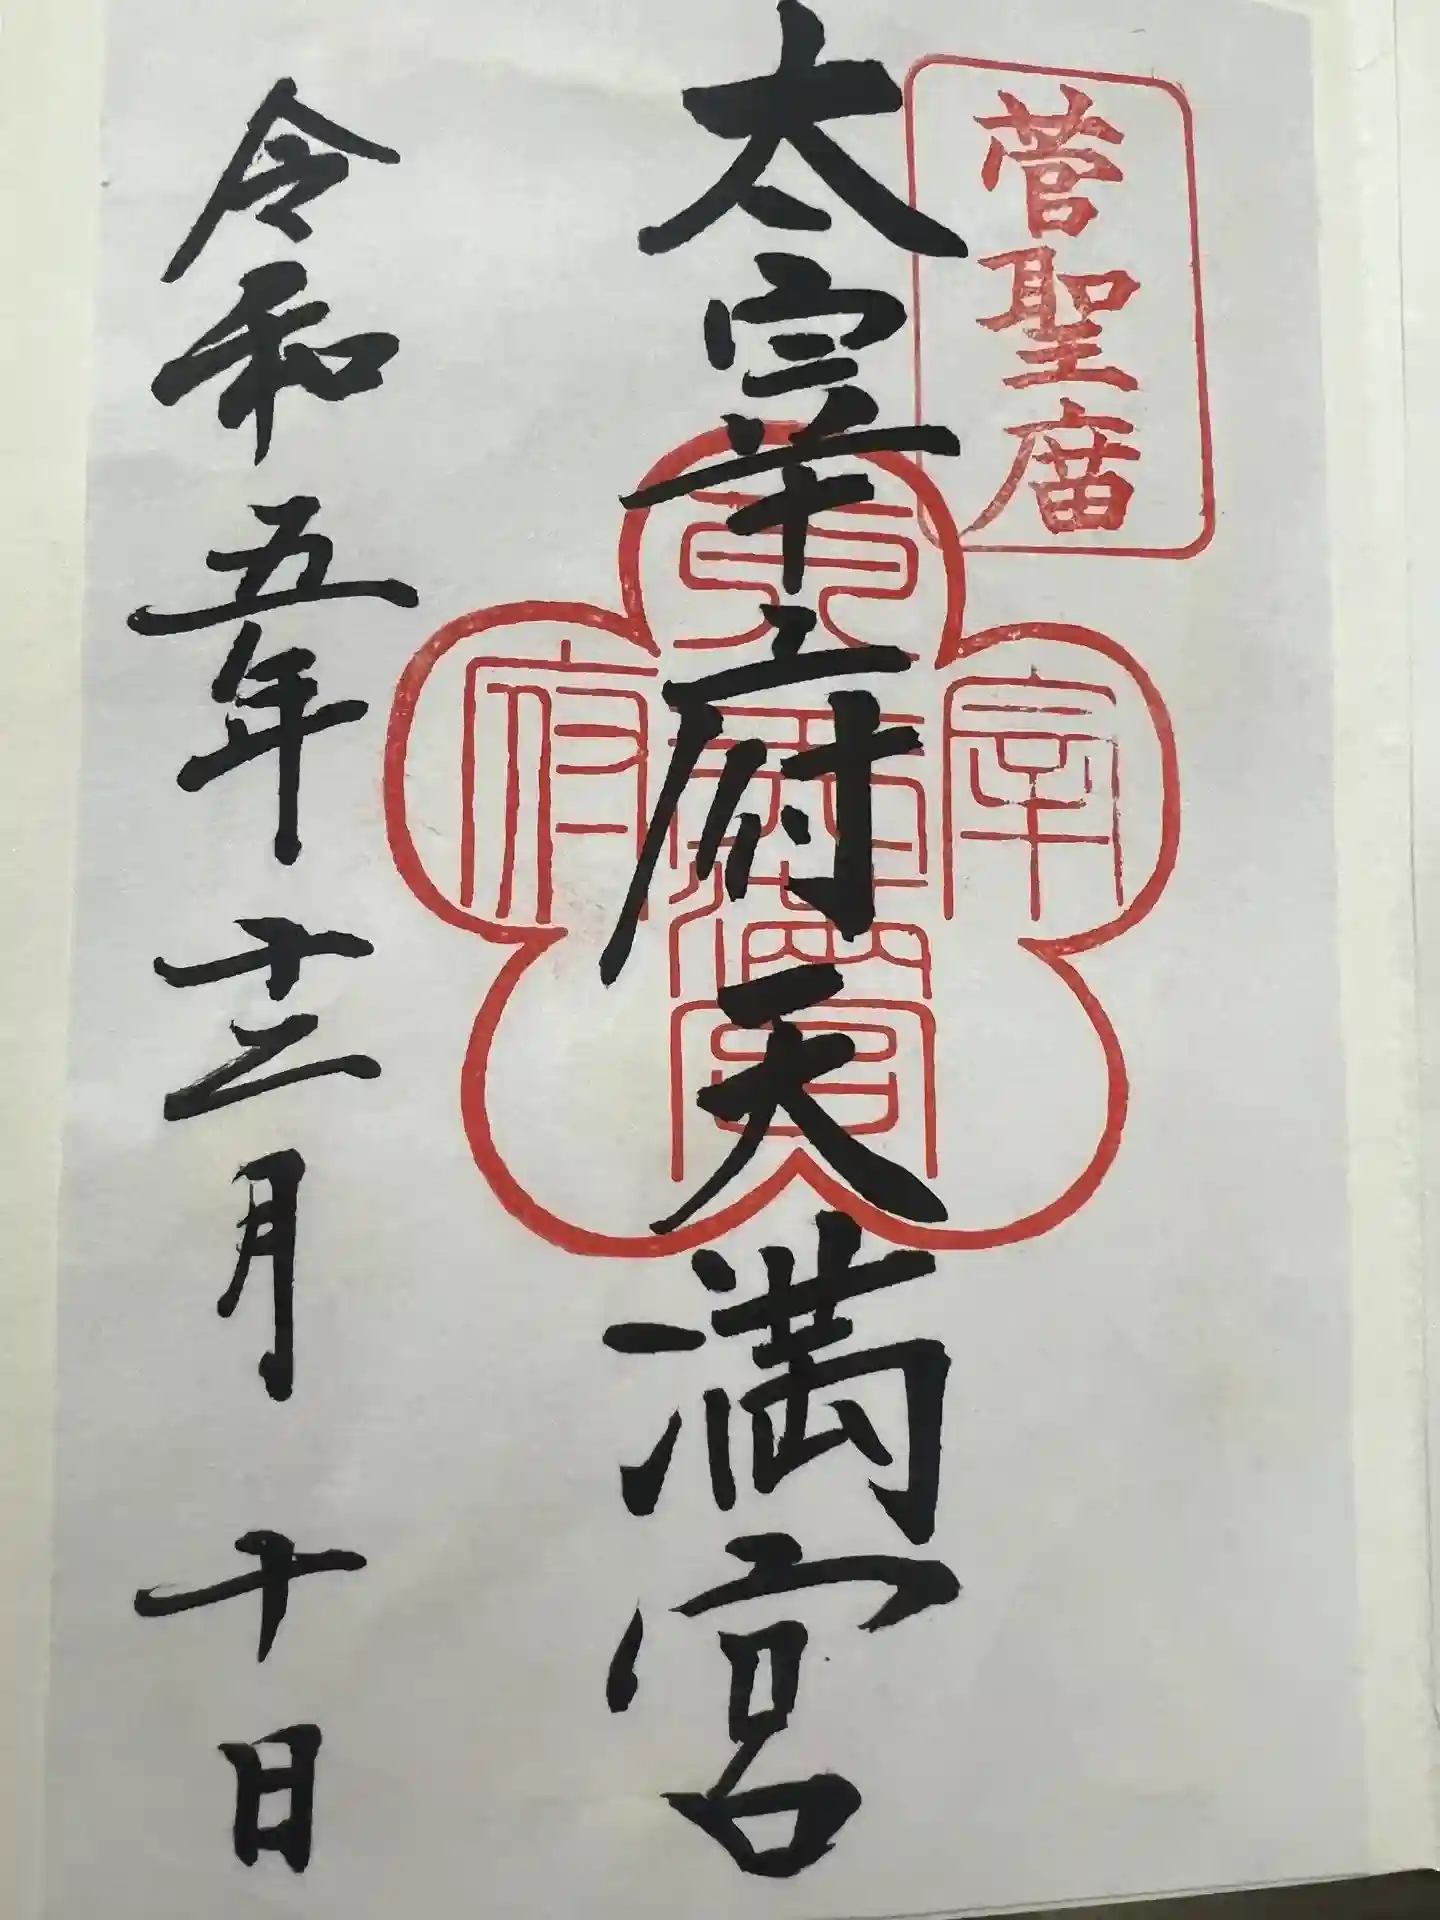 菅聖庿
太宰府天満宮
宰
府
令和五年十二月十日